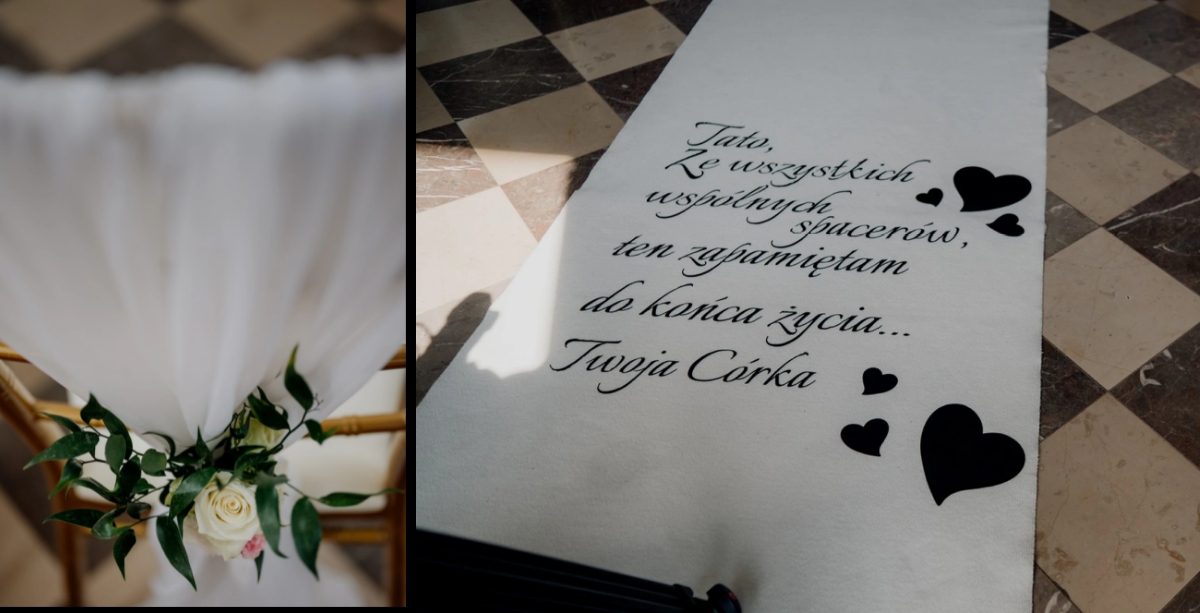 Tato,
Ze wszystkich
wspólnych
spacerów,
ten zapamiętam
do końca życia...
Twoja Córka